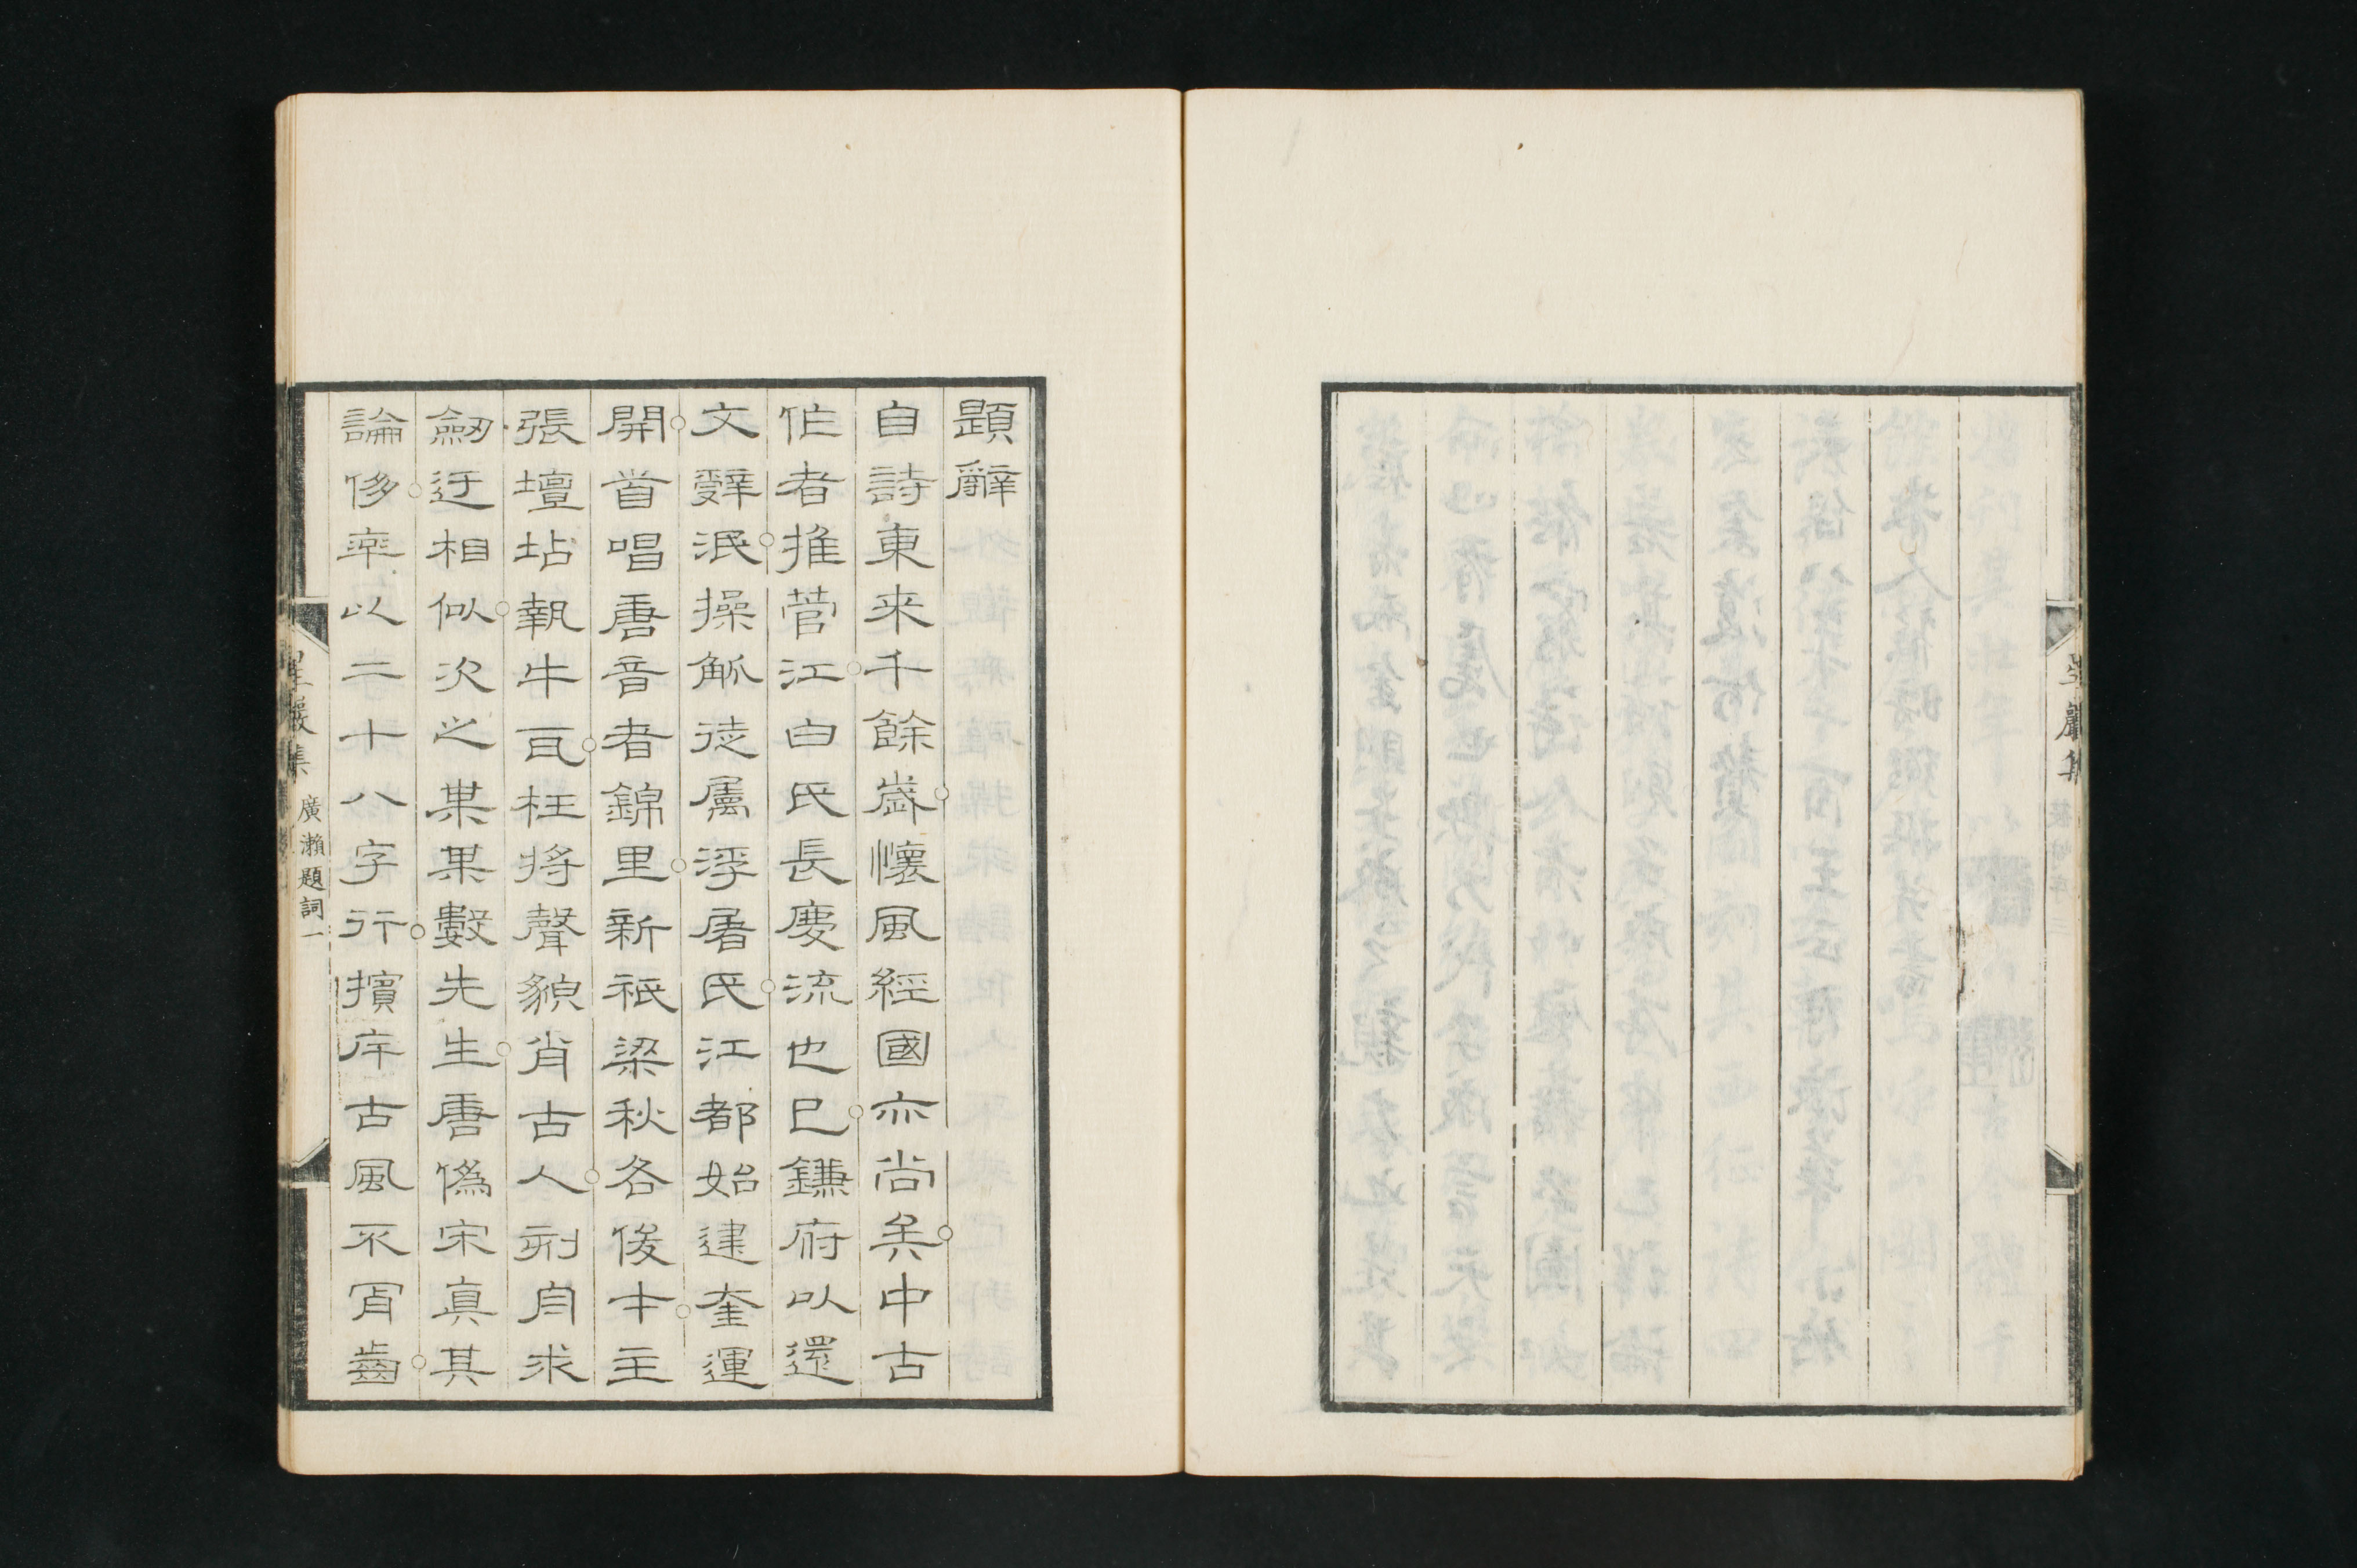 星巖集
題辭
自詩東来千餘歲懷風經國亦尚矣中古
作者推菅江白氏長慶流也已鎌府以還
文辭泯操觚徒屬浮屠氏江都始建奎運
開首唱唐音者錦里新祇梁秋各後才主
張壇坫執牛耳枉將聲貌肖古人刓角求
劔迂相似次之果果數先生唐僞宋真其
論侈率以二十八字行擯斥古風不冐齒
星巖集 廣瀬題詞一